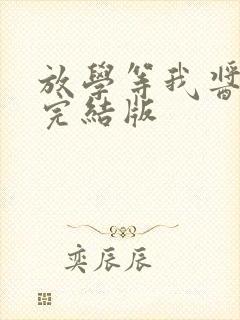 放學等我 醬
完結版
奕辰辰